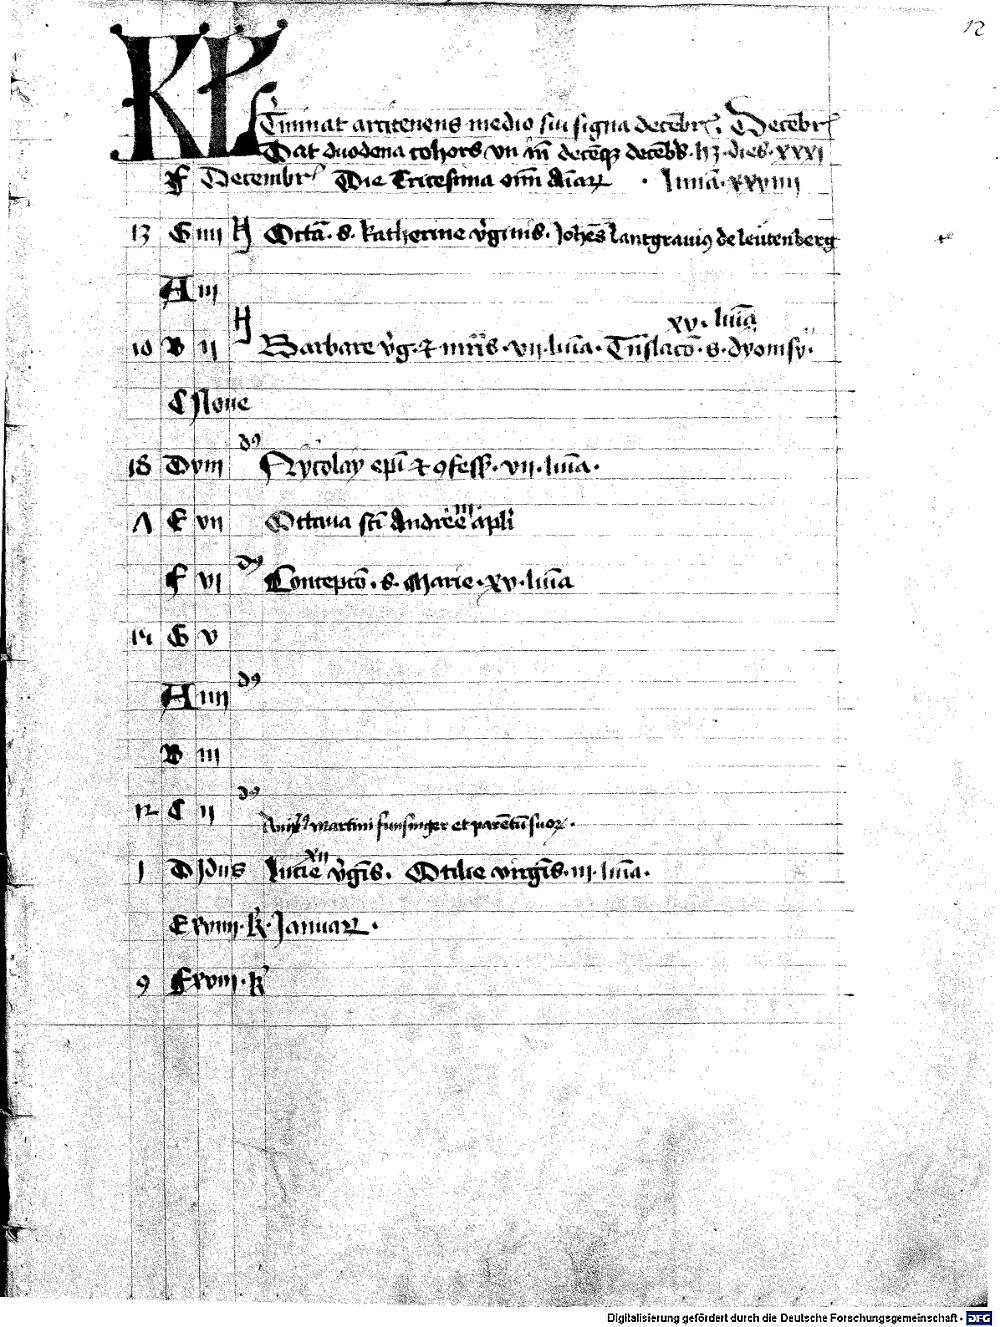 12
KL Tminat arcitenens medio sui signa decēbr. Decēbr
Dat duodena cohors vii īn decēq3 decēbs. h3. dies. xxxi
F Decembr Die Tricesima om̄ Aīarz . luna. xxviiii
13 G iiii H Octā. s. katherine v̓ginis. Johēs lantgravi9 de leutenberg
A iii
H xv. lūia
10 B ii Barbare v̓g. et mr̄is. vii. lūia. Tn̄slacō. s. dyonisy.
C None
d9
18 D viii Nycolay ep̄i et 9fess. vii. lūia.
iii
Λ E vii Octava sc̄i Andree ap̄li
d9
F vi Concepcō. s. Marie. xv. lūia
14 G v
d9
A iiii
B iii
d9
12 C ii martini funsinger et parētū suorz.
xii
1 D Idus lucie v̓gīs. Otilie virgīs. iii. lūia.
E xviiii. k̓. Januarz.
9 F xviii. k̓
Digitalisierung gefördert durch die Deutsche Forschungsgemeinschaft - DFG